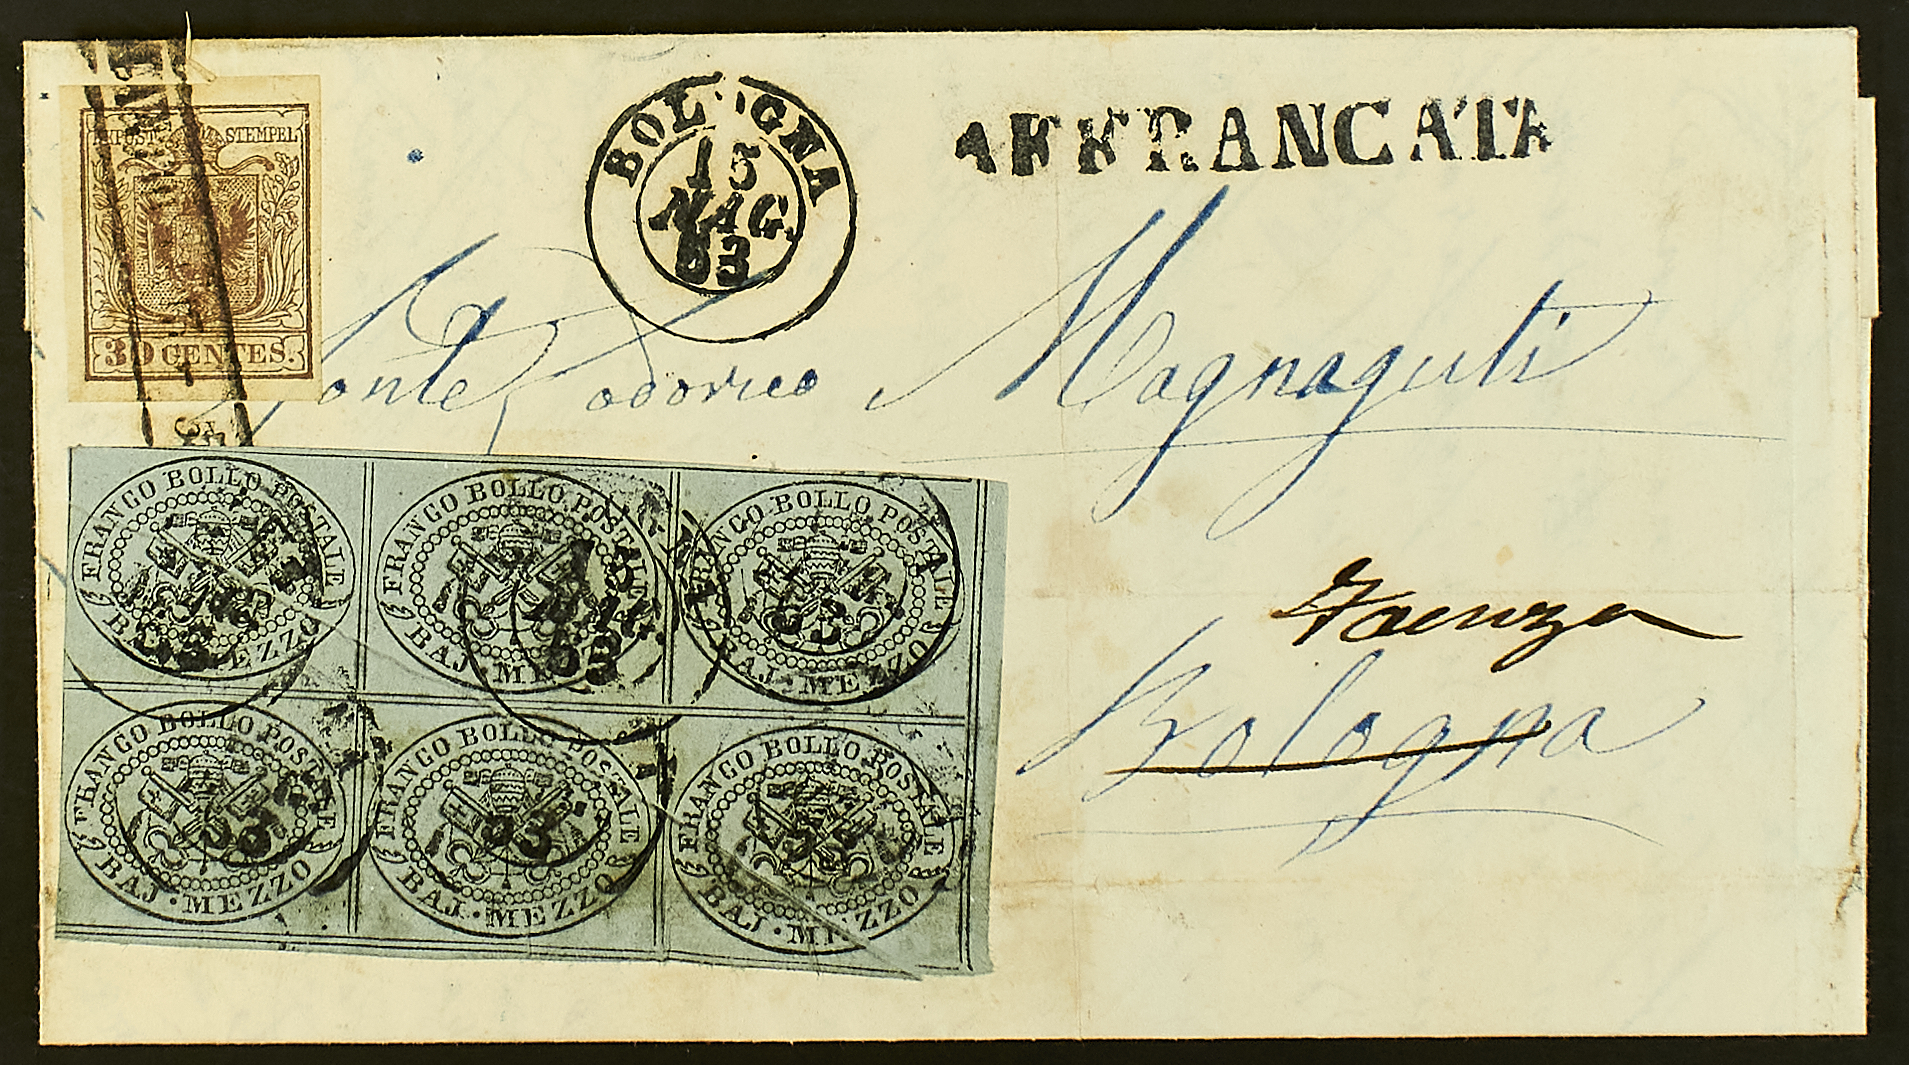 KPOST STEMPEL
30 CENTES.
BOLOGNA
15
MAG.
53
AFFRANCATA
Conte Lodovico Magnaguti
Faenza
Bologna
FRANCO BOLLO POSTALE
BAJ. MEZZO
FRANCO BOLLO POSTALE
BAJ. MEZZO
FRANCO BOLLO POSTALE
BAJ. MEZZO
FRANCO BOLLO POSTALE
BAJ. MEZZO
FRANCO BOLLO POSTALE
BAJ. MEZZO
FRANCO BOLLO POSTALE
BAJ. MEZZO